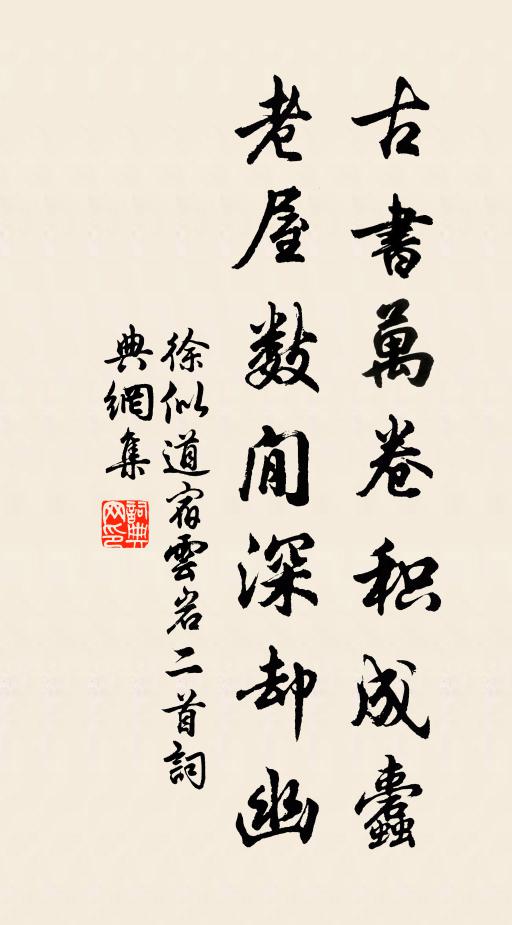 古書萬卷积成蠹
老屋数间深却幽
徐似道宿雲岩二首詞
典網集
詞典
网印